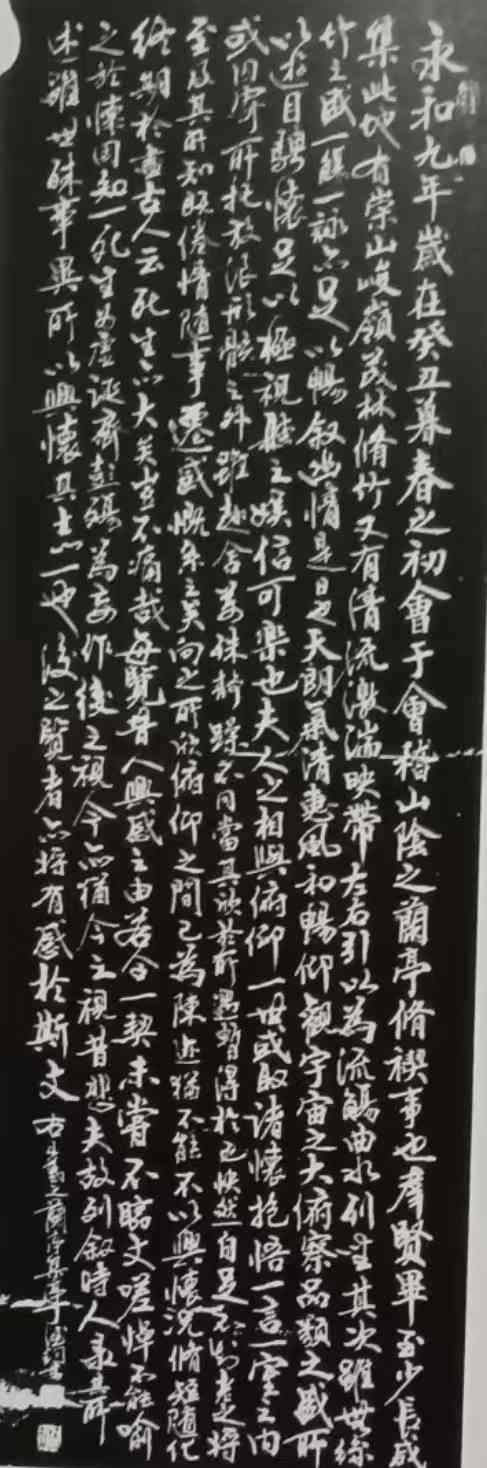 永和九年歲在癸丑暮春之初會于會稽山陰之蘭亭脩禊事也群賢畢至少長咸
集此地有崇山峻嶺茂林脩竹又有清流激湍映帶左右引以為流觴曲水列坐其次雖無絲
竹之盛一觴一詠亦足以暢敘幽情是日也天朗氣清惠風和暢仰觀宇宙之大俯察品類之盛所
以遊目騁懷足以極視聽之娛信可樂也夫人之相與俯仰一世或取諸懷抱悟言一室之內
或因寄所托放浪形骸之外雖趣舍萬殊靜躁不同當其欣於所遇暫得於己怏然自足不知老之將
至及其所知既倦情隨事遷感慨係之矣向之所欣俯仰之間已為陳迹猶不能不以興懷況脩短隨化
終期於盡古人云死生亦大矣豈不痛哉每覽昔人興感之由若合一契未嘗不臨文嗟悼不能喻
之於懷固知一死生為虛誕齊彭殤為妄作後之視今亦猶今之視昔悲夫故列敘時人錄其所
述雖世殊事異所以興懷其致一也後之覽者亦將有感於斯文